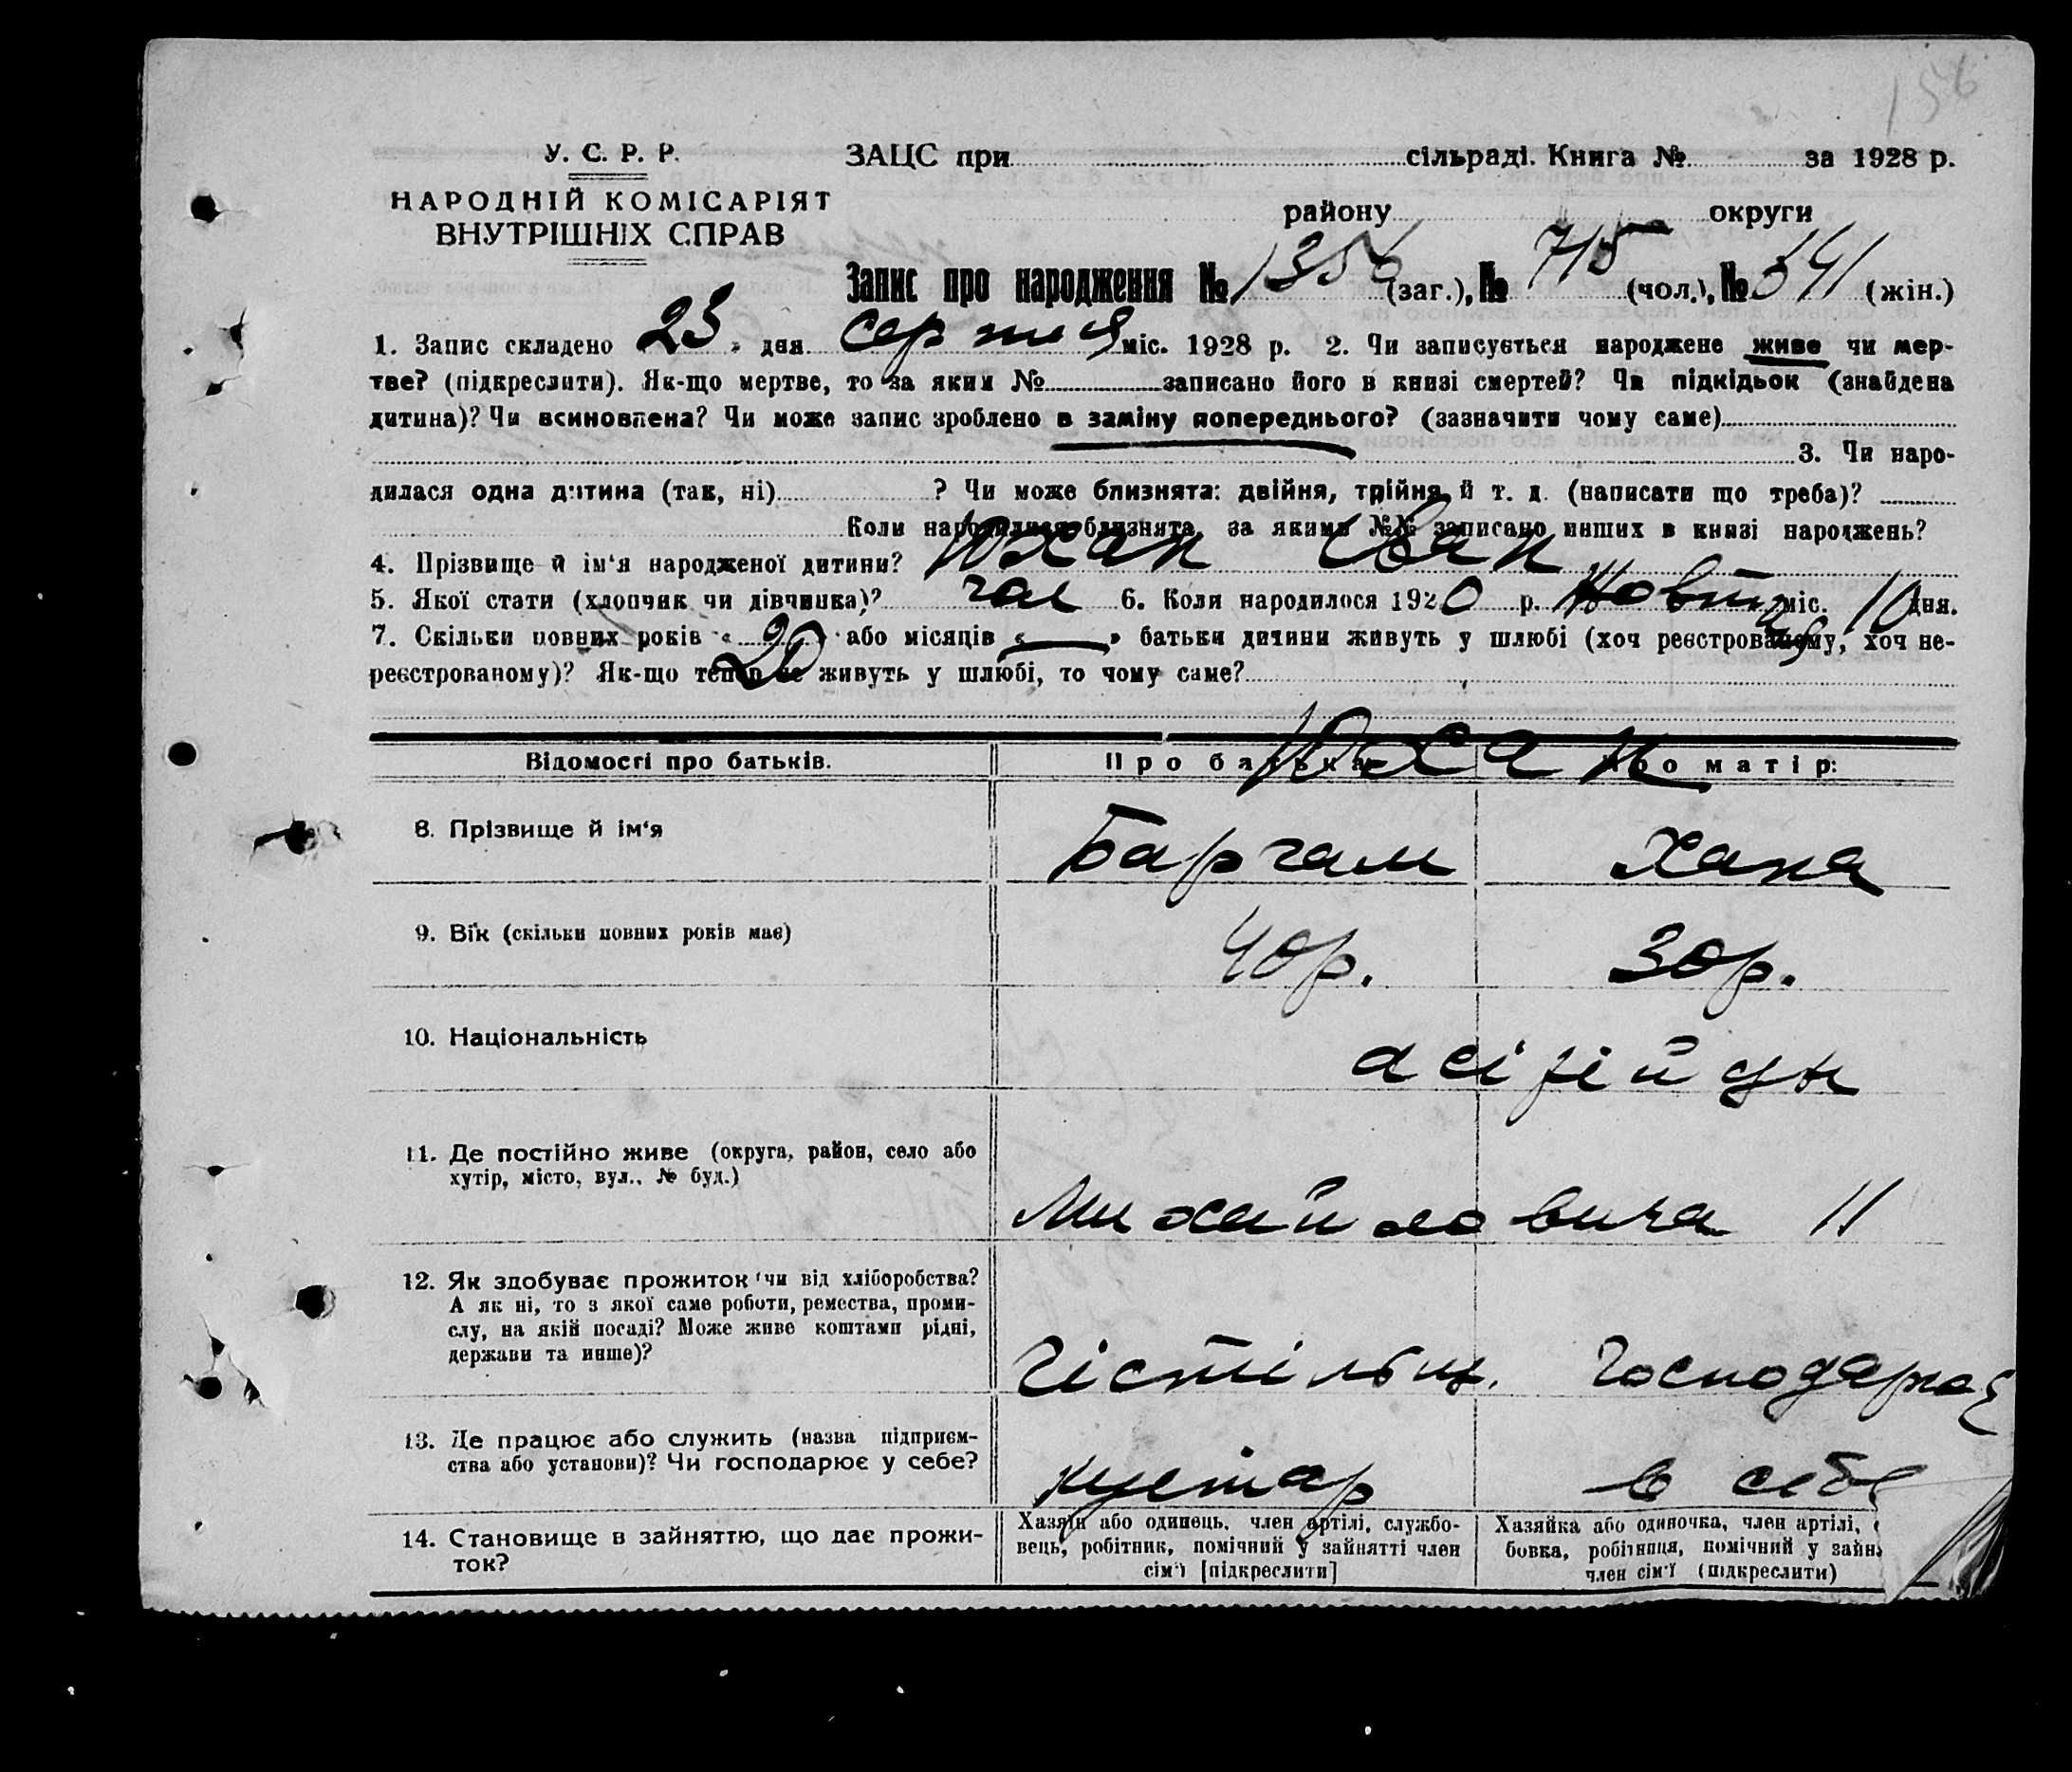 156
У. С. Р. Р.
НАРОДНІЙ КОМІСАРІЯТ
ВНУТРІШНІХ СПРАВ
ЗАЦС при сільраді. Книга № за 1928 р.
району округи
Запис про народження № 1356 (заг.), № 715 (чол.), № 641 (жін.)
1. Запис складено „ 23 „ дня серпня міс. 1928 р. 2. Чи записується народжене живе чи мер-
тве? (підкреслити). Як-що мертве, то за яким № записано його в книзі смертей? Чи підкідьок (знайдена
дитина)? Чи всиновлена? Чи може запис зроблено в заміну попереднього? (зазначити чому саме)
3. Чи наро-
дилася одна дитина (так, ні) ? Чи може близнята: двійня, трійня й т. д. (написати що треба)?
Коли народилися близнята, за якими №№ записано инших в книзі народжень?
4. Прізвище й ім‘я народженої дитини? Юхан Іван
5. Якої стати (хлопчик чи дівчинка)? чол 6. Коли народилося 1920 р. Жовтня міс. 10 дня.
7. Скільки повних років « 20 » або місяців « — » батьки дитини живуть у шлюбі (хоч реєстрованому, хоч не-
реєстрованому)? Як-що тепер не живуть у шлюбі, то чому саме?
Юхан
Відомості про батьків. Про батька: Про матір:
8. Прізвище й ім‘я Баргам Хана
9. Вік (скільки повних років має) 40р. 30р.
10. Національність асірійці
11. Де постійно живе (округа, район, село або
хутір, місто, вул., № буд.)
Михайловича 11
12. Як здобуває прожиток чи від хліборобства?
А як ні, то з якої саме роботи, ремества, проми-
слу, на якій посаді? Може живе коштами рідні,
держави та инше)?
Чістільщ. Господарка
13. Де працює або служить (назва підприєм-
ства або установи)? Чи господарює у себе?
кустар в себе
14. Становище в зайняттю, що дає прожи-
ток?
Хазяїн або одинець, член артілі, службо-
вець, робітник, помічний у зайнятті член
сім‘ї [підкреслити]
Хазяйка або одиночка, член артілі,
бовка, робітниця, помічний у зайн
член сім‘ї (підкреслити)